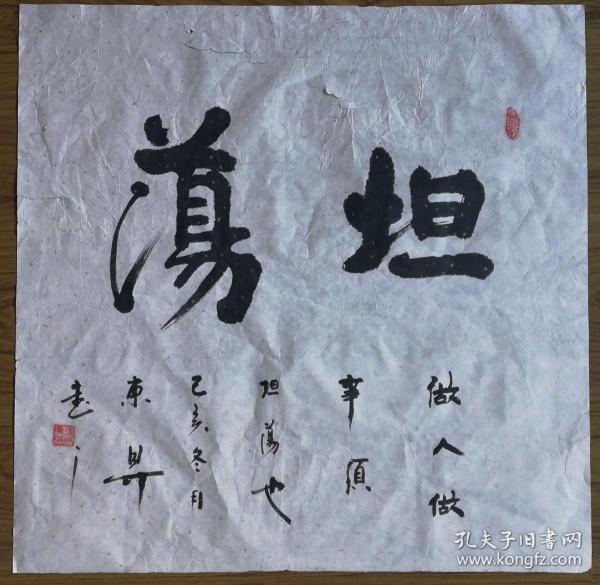 坦蕩
做人做
事須
坦蕩也
己亥冬月
東昇
書
孔夫子旧书网
www.kongfz.com